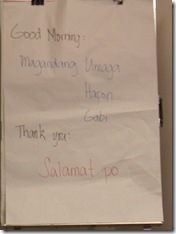 Good Morning:
Magandang Umaga
Hapon
Gabi
Thank you:
Salamat po